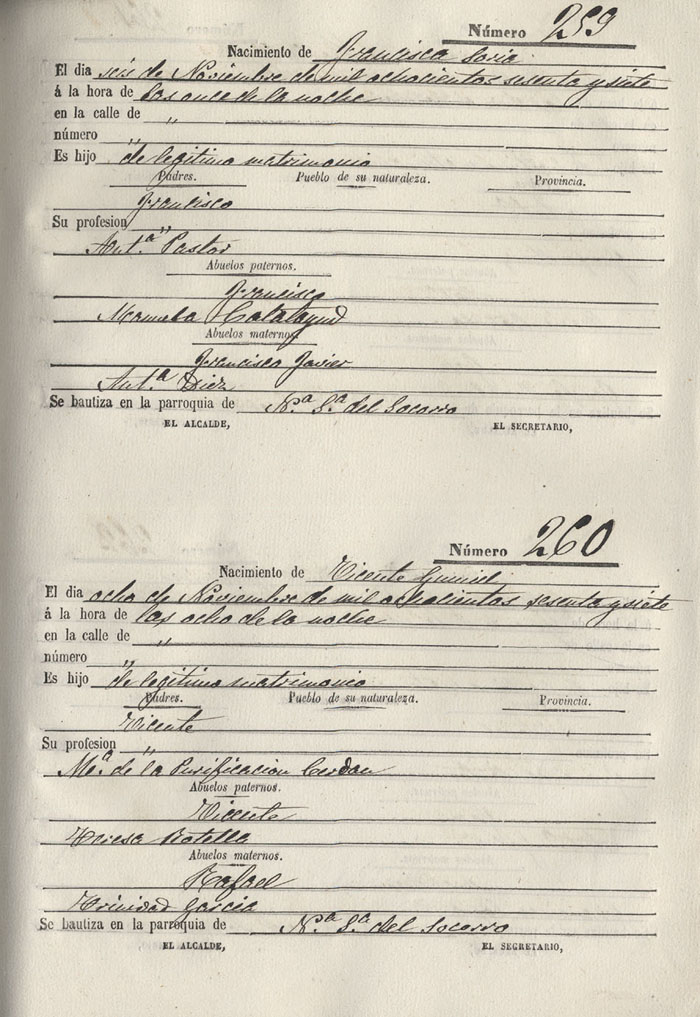 Número 259
Nacimiento de Francisca Soria
El dia seis de Noviembre de mil ochocientos sesenta y siete
á la hora de las once de la noche
en la calle de "
número "
Es hijo de legitimo matrimonio
Padres. Pueblo de su naturaleza. Provincia.
Francisco
Su profesion "
Ant.ª Pastor
Abuelos paternos.
Francisco
Manuela Calatayud
Abuelos maternos.
Francisco Javier
Ant.ª Diez
Se bautiza en la parroquia de N.ª S.ª del Socorro
EL ALCALDE, EL SECRETARIO,
Número 260
Nacimiento de Vicente Gumiel
El dia ocho de Noviembre de mil ochocientos sesenta y siete
á la hora de las ocho de la noche
en la calle de "
número "
Es hijo de legitimo matrimonio
Padres. Pueblo de su naturaleza. Provincia.
Vicente
Su profesion "
M.ª de la Purificacion Cerdan
Abuelos paternos.
Vicente
Teresa Botella
Abuelos maternos.
Rafael
Trinidad Garcia
Se bautiza en la parroquia de N.ª S.ª del Socorro
EL ALCALDE, EL SECRETARIO,